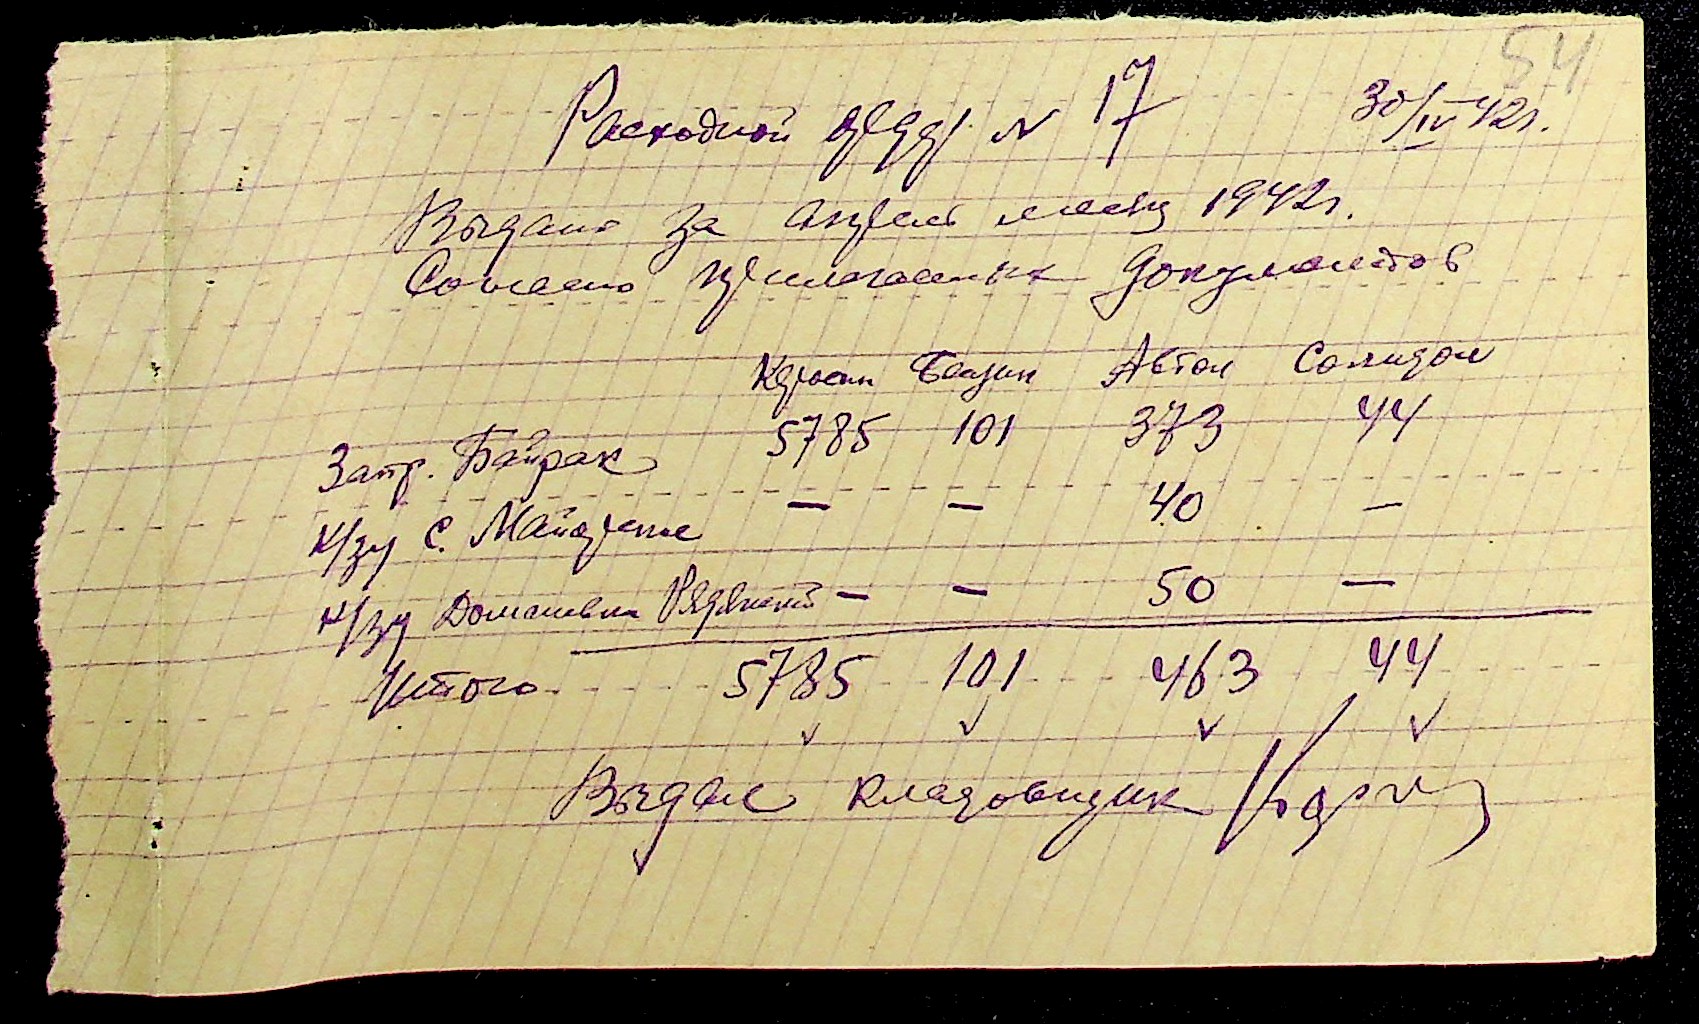 54
Расходной ордер № 17 30/IV 42г.
Выдано за апрель месяц 1942г.
Согласно прилагаемых документов
Керосин Бензин Автол Солидол
Запр. Байрак 5785 101 373 44
к/зу с. — — 40 —
к/зу — — 50 —
Итого 5785 101 463 44
Выдал кладовщик